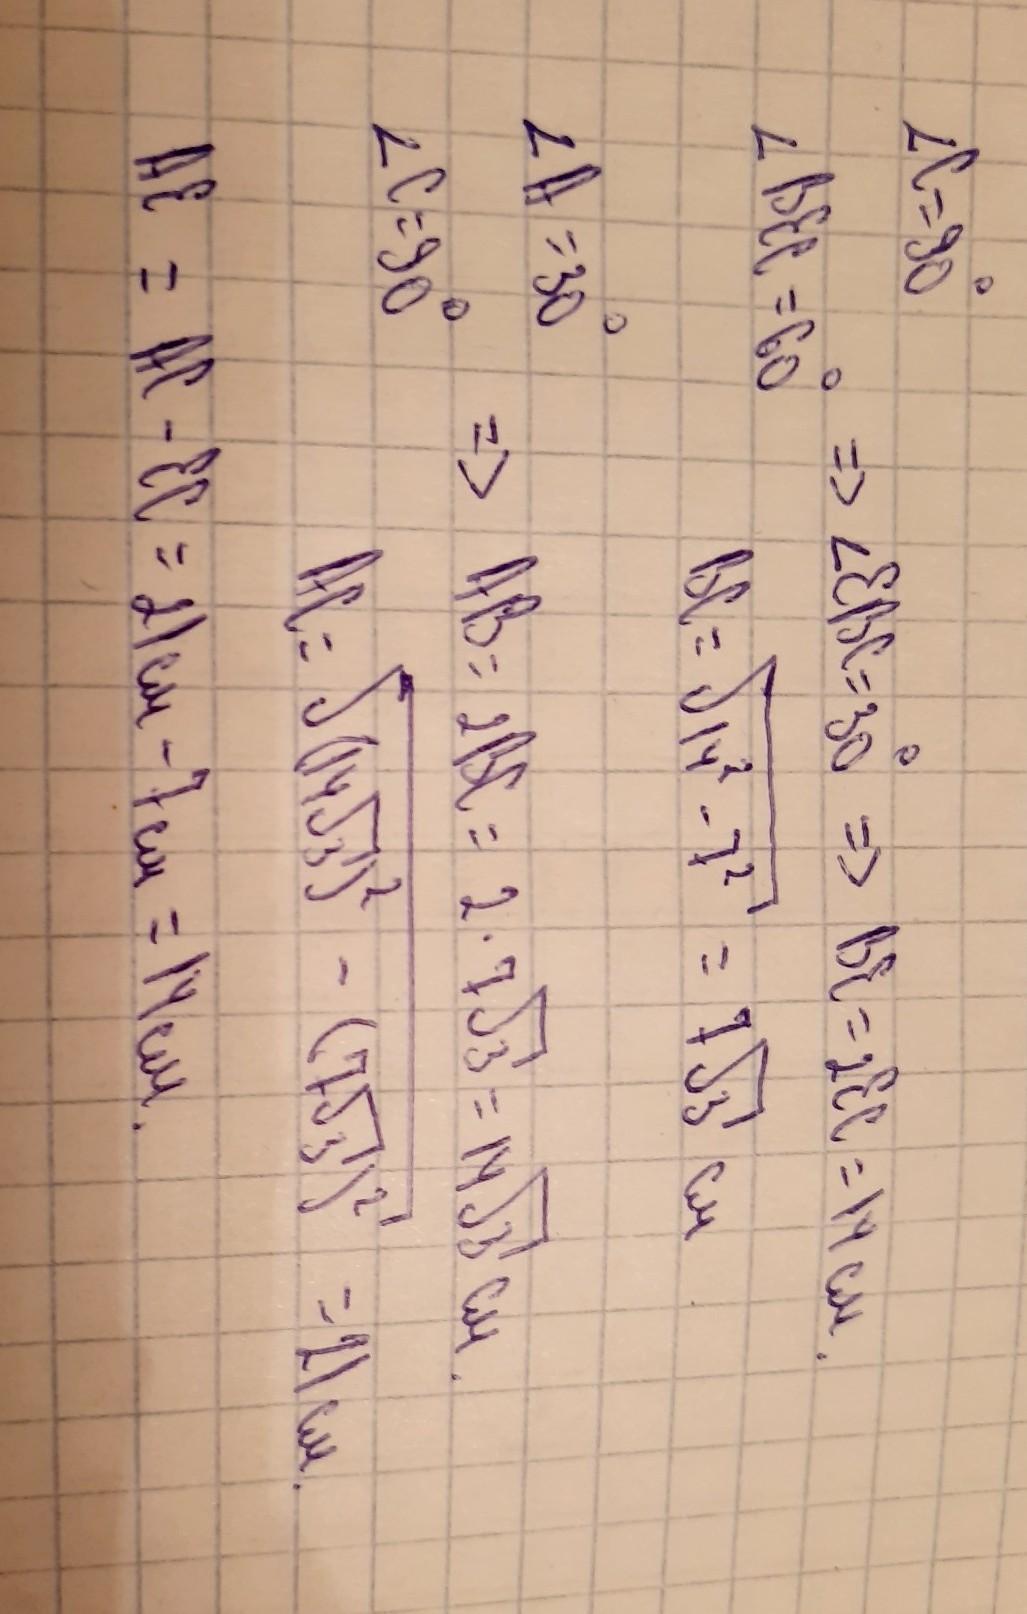 ∠C=90°
∠BEC=60° => ∠EBC=30° => BE=2EC=14 см.
BC=√(14²-7²) = 7√3 см
∠A=30°
∠C=90° => AB=2BC=2·7√3=14√3 см.
AC=√((14√3)² - (7√3)²) =21 см.
AE = AC-EC=21см-7см=14см.